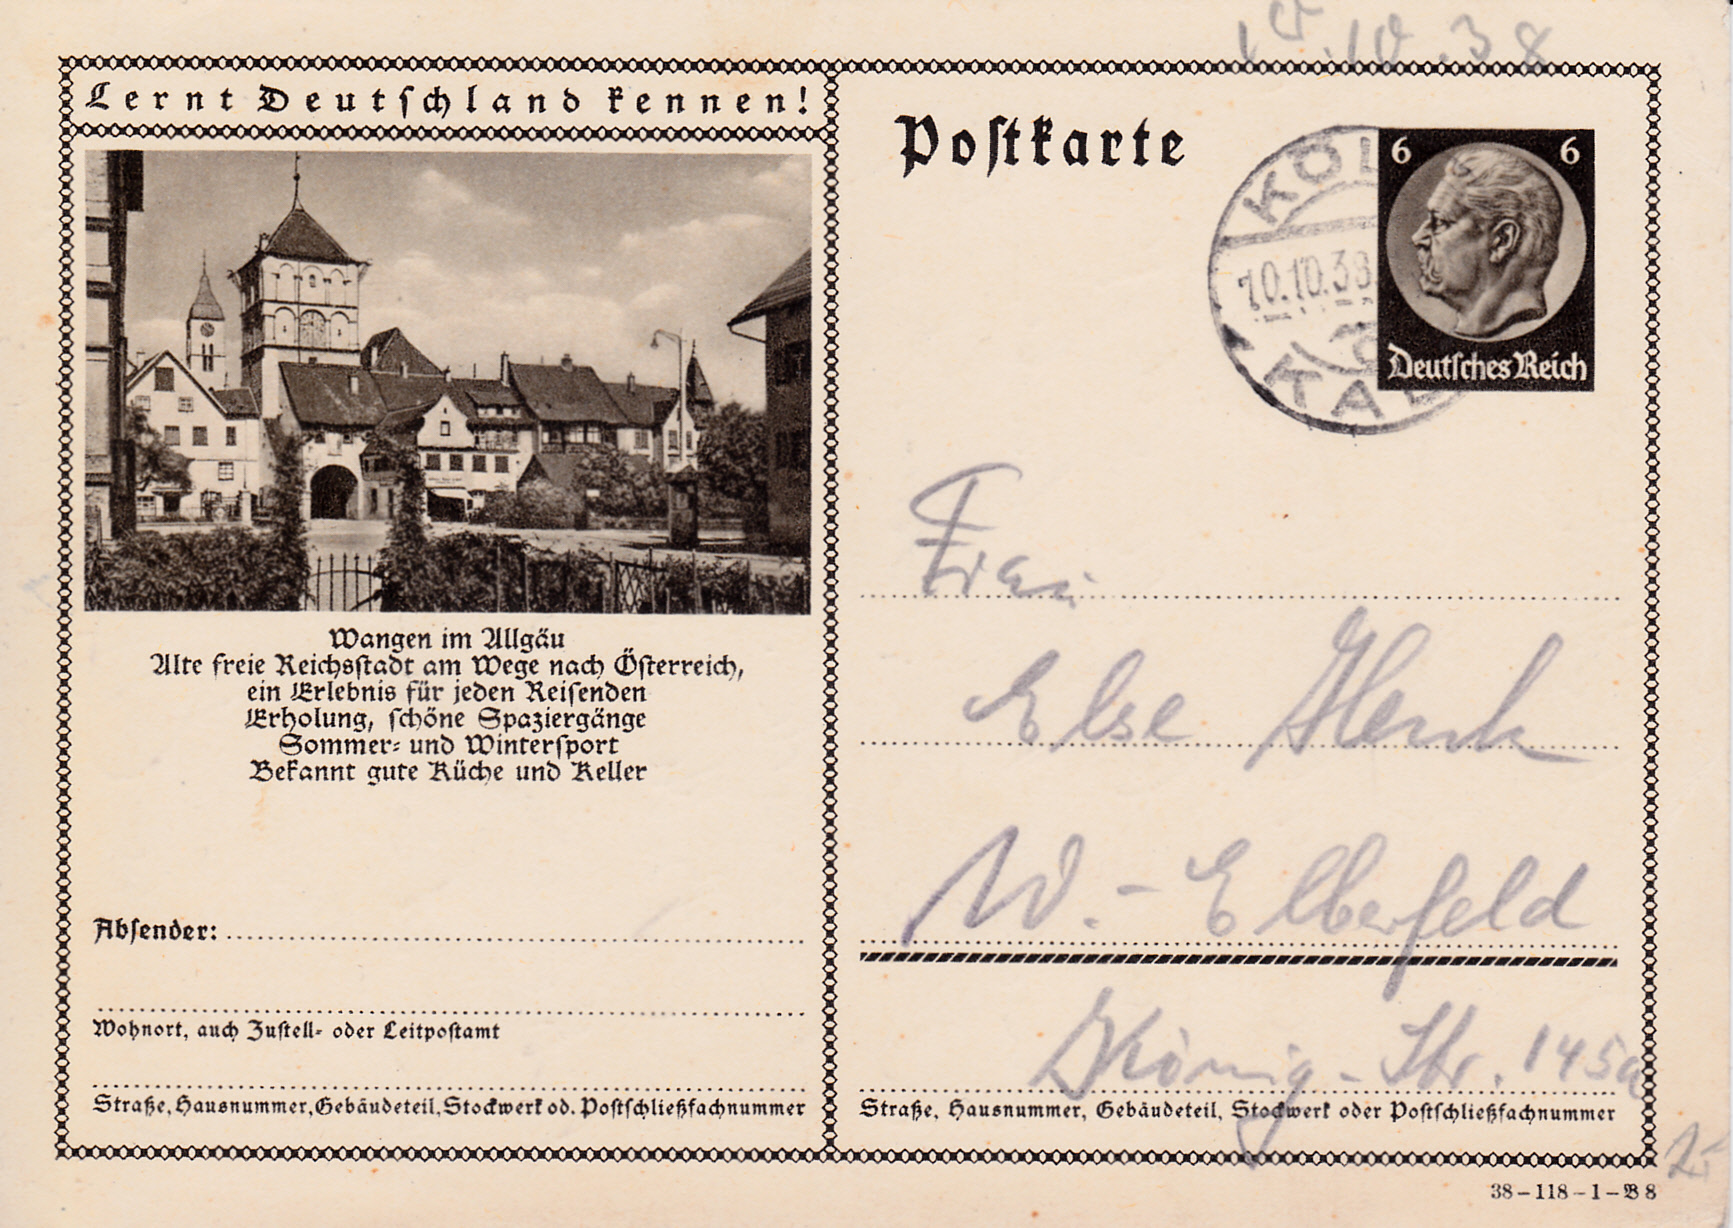 10.10.38
Lernt Deutschland kennen!
Postkarte
KÖL
10.10.38
KAL
6 6
Deutsches Reich
Wangen im Allgäu
Alte freie Reichsstadt am Wege nach Österreich,
ein Erlebnis für jeden Reisenden
Erholung, schöne Spaziergänge
Sommer- und Wintersport
Bekannt gute Küche und Keller
Absender:
Wohnort, auch Zustell- oder Leitpostamt
Straße, Hausnummer, Gebäudeteil, Stockwerk od. Postschließfachnummer
Frau
Else
W.-Elberfeld
König-Str. 145a
Straße, Hausnummer, Gebäudeteil, Stockwerk oder Postschließfachnummer
38-118-1-B8